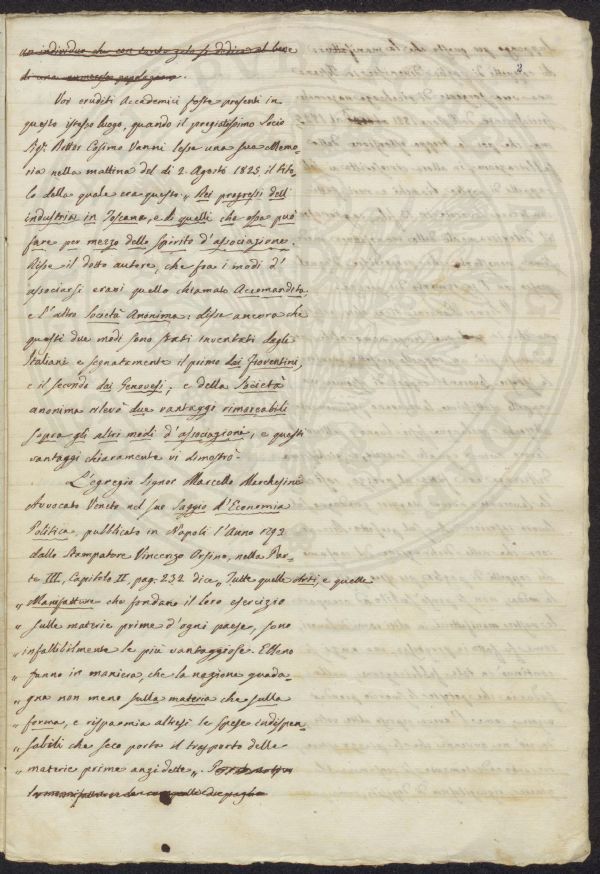 2
un individuo che con tanto zelo si dedica al bene
di una numerosa popolazione.
Voi eruditi Accademici foste presenti in
questo istesso luogo, quando il pregiatissimo Socio
Sigr. Dottor Cosimo Vanni lesse una sua Memo-
ria nella mattina del dì 2. Agosto 1825, il tito-
lo della quale era questo: „ Dei progressi dell'
industria in Toscana, e di quelli che essa può
fare per mezzo dello spirito d'associazione.
Disse il dotto autore, che fra i modi d'
associarsi eravi quello chiamato Accomandita,
e l'altro Società Anonima: disse ancora che
questi due modi sono stati inventati dagli
Italiani e segnatamente il primo dai Fiorentini,
e il secondo dai Genovesi; e della Società
anonima rilevò due vantaggi rimarcabili
sopra gli altri modi d'associazione, e questi
vantaggi chiaramente vi dimostrò.
L'egregio Signor Marcello Marchesini
Avvocato Veneto nel suo Saggio d'Economia
Politica, pubblicato in Napoli l'Anno 1793
dallo Stampatore Vincenzo Orsino, nella Par-
te III, Capitolo II, pag. 232 dice „ Tutte quelle Arti, e quelle
„ Manifatture che fondano il loro esercizio
„ sulle materie prime d'ogni paese, sono
„ infallibilmente le più vantaggiose. Elleno
„ fanno in maniera, che la nazione guada-
„ gna non meno sulla materia che sulla
„ forma, e risparmia altresì le spese indispen-
„ sabili che seco porta il trasporto delle
„ materie prime anzidette „.
la manifattura dei cappelli di paglia